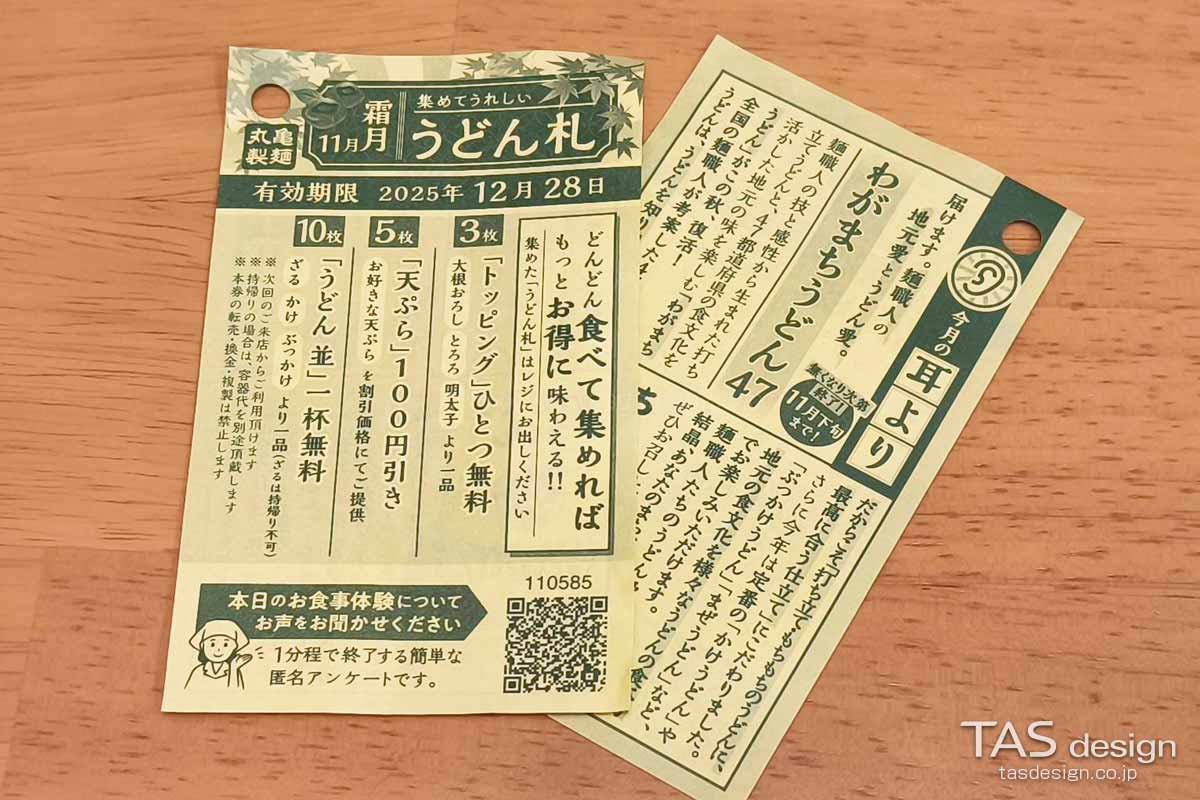 丸亀製麺
霜月
11月
集めてうれしい
うどん札
有効期限 2025年 12月 28日
どんどん食べて集めれば
もっとお得に味わえる!!
集めた「うどん札」はレジにお出しください
3枚
「トッピング」ひとつ無料
大根おろし とろろ 明太子 より一品
5枚
「天ぷら」100円引き
お好きな天ぷら を割引価格にてご提供
10枚
「うどん 並」一杯無料
ざる かけ ぶっかけ より一品(ざるは持帰り不可)
※次回のご来店からご利用頂けます
※持帰りの場合は、容器代を別途頂戴します
※本券の転売・換金・複製は禁止します
110585
本日のお食事体験について
お声をお聞かせください
1分程で終了する簡単な
匿名アンケートです。
今月の
耳より
届けます。麺職人の
地元愛とうどん愛。
わがまちうどん47
無くなり次第
終了!
11月下旬
まで!
麺職人の技と感性から生まれた打ち
立てうどんと、47都道府県の食文化を
活かした地元の味を楽しむ「わがまち
うどん」がこの秋、復活!
全国の麺職人が考案した4
うどんは、うどんを知り
だからこそ「打ち立てもちもちのうどんに、
最高に合う仕立て」にこだわりました。
さらに今年は定番の「かけうどん」や
「ぶっかけうどん」「まぜうどん」など、
地元の食文化を様々なうどんの食
でお楽しみいただけます。
麺職人たちのうどん
結晶、あなたのまち
ぜひお召し
TAS design
tasdesign.co.jp